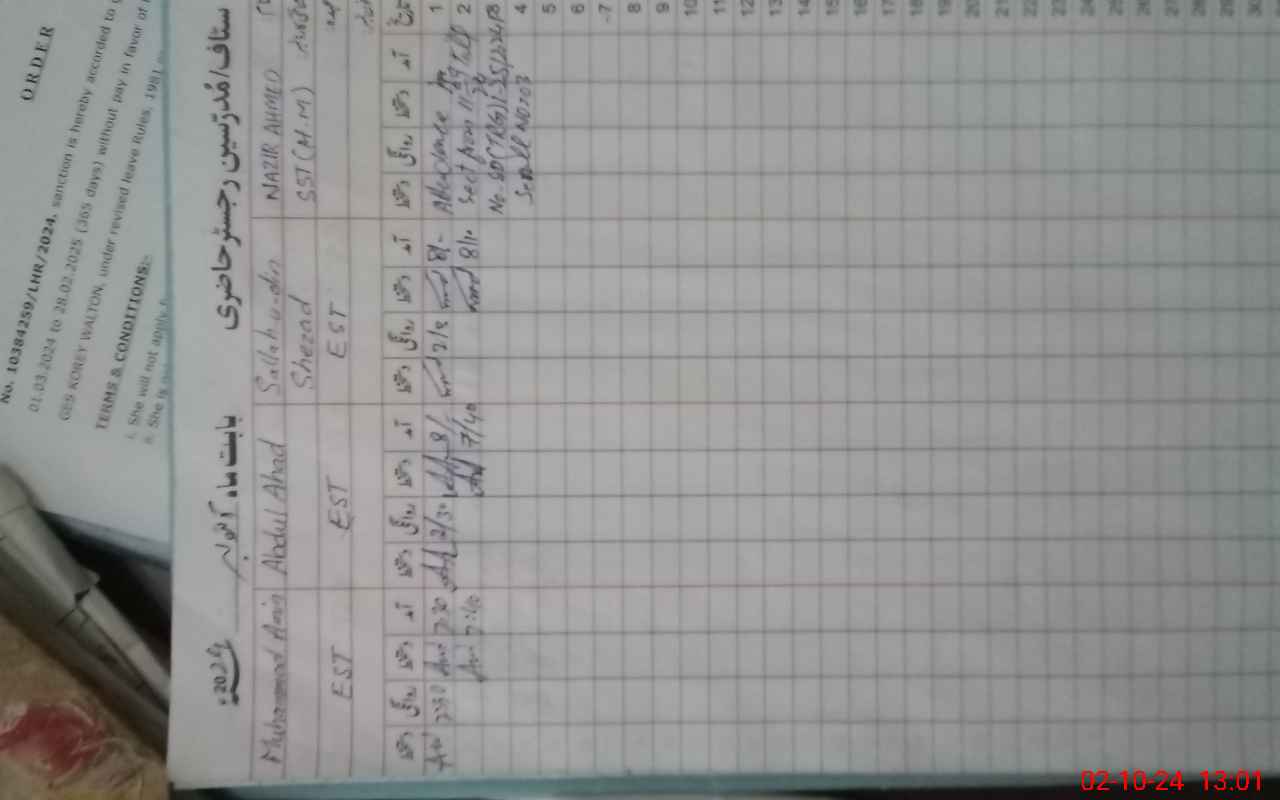 ORDER
No. 10384259/LHR/2024, sanction is hereby accorded to
01.03.2024 to 28.02.2025 (365 days) without pay in favor of
GES KOREY WALTON, under revised leave Rules, 1981
TERMS & CONDITIONS:-
i. She will not apply
ii. She is
سٹاف/مُدرّسین رجسٹر حاضری
بابت ماہ اکتوبر 2024ء
NAZIR AHMED
SST (M.M)
Sallah u-din
Shezad
EST
Abdul Ahad
EST
Muhammad Amin
EST
تاریخ آمد دستخط روانگی دستخط آمد دستخط روانگی دستخط آمد دستخط روانگی دستخط آمد دستخط روانگی دستخط
1 Attendance 8/- 2/3 8/- 2/30 7:30 2:30
2 Sect from 11 8/10 7/40 7:40
3 No. SO(TRG)
4 Serial No:03
5
6
7
8
9
10
11
12
13
14
15
16
17
18
19
20
21
22
23
24
25
26
27
28
29
30
02-10-24 13:01